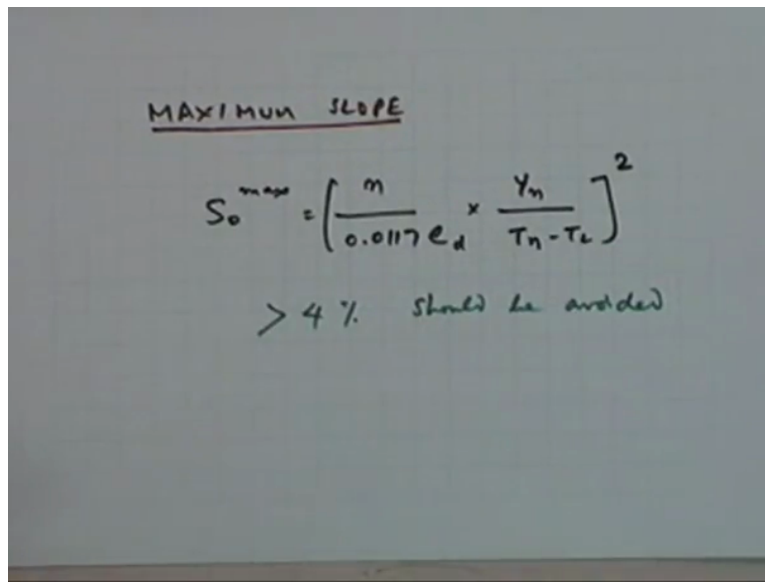 MAXIMUM SLOPE
S₀ᵐᵃˣ = [ n / 0.0117 e_d × Y_n / T_n - T_L ]²
> 4 % Should be avoided